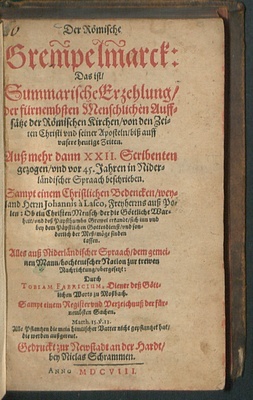 Der Römische
Grempelmarck:
Das ist/
Summarische Erzehlung/
der fürnembsten Menschlichen Auff-
sätze der Römischen Kirchen/von den Zei-
ten Christi vnd seiner Aposteln/biß auff
vnsere heutige Zeiten.
Auß mehr dann XXII. Scribenten
gezogen/vnd vor 45. Jahren in Nider-
ländischer Spraach beschrieben.
Sampt einem Christlichen Bedencken/wey-
land Herrn Johannis à Lasco, Freyherrns auß Po-
len: Ob ein Christen Mensch/der die Göttliche War-
heit/vnd deß Papstthumbs Grewel erkandt/sich
bey dem Päpstlichen Gottesdienst/vnd
der Meß/möge finden
lassen.
Alles auß Niderländischer Spraach/dem gemei-
nen Mann/hochteutscher Nation zur trewen
Nachrichtung/vbergesetzt:
Durch
Tobiam Fabricium, Diener deß Göt-
lichen Worts zu Moßbach.
Sampt einem Register vnd Verzeichnuß der für-
nemsten Sachen.
Matth. 15. v. 13.
Alle Pflantzen die mein himlischer Vatter nicht gepflantzet hat/
die werden außgereut.
Gedruckt zur Newstadt an der Hardt/
bey Niclas Schrammen.
Anno MDCVIII.